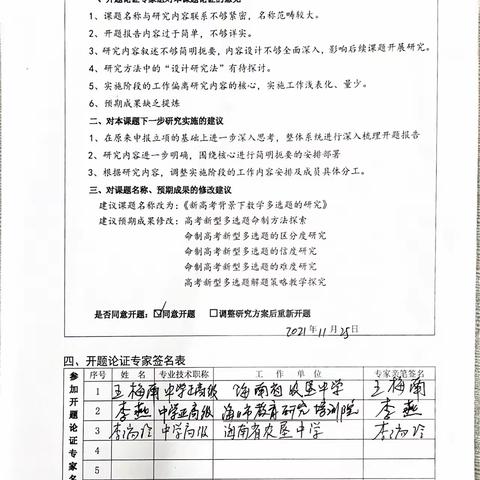 1、课题名称与研究内容联系不够紧密，名称范畴较大。
2、开题报告内容过于简单，不够详实。
3、研究内容叙述不够简明扼要，内容设计不够全面深入，影响后续课题开展研究。
4、研究方法中的“设计研究法”有待探讨。
5、实施阶段的工作偏离研究内容的核心，实施工作浅表化、量少。
6、预期成果缺乏提炼
二、对本课题下一步研究实施的建议
1、在原来申报立项的基础上进一步深入思考，整体系统进行深入梳理开题报告
2、研究内容进一步明确，围绕核心进行简明扼要的安排部署
3、根据研究内容，调整实施阶段的工作内容安排及成员具体分工。
三、对课题名称、预期成果的修改建议
建议课题名称改为：《新高考背景下数学多选题的研究》
建议预期成果修改：高考新型多选题命制方法探索
命制高考新型多选题的区分度研究
命制高考新型多选题的信度研究
命制高考新型多选题的难度研究
高考新型多选题解题策略教学探究
是否同意开题：☑同意开题 □调整研究方案后重新开题
2021年11月25日
四、开题论证专家签名表
参加开题论证专家名
序号 姓名 专业技术职称 工作单位 专家亲笔签名
1 王梅南 中学正高级 海南省农垦中学 王梅南
2 李燕 中学正高级 海口市教育研究培训院 李燕
3 中学高级 海南省农垦中学
4
5